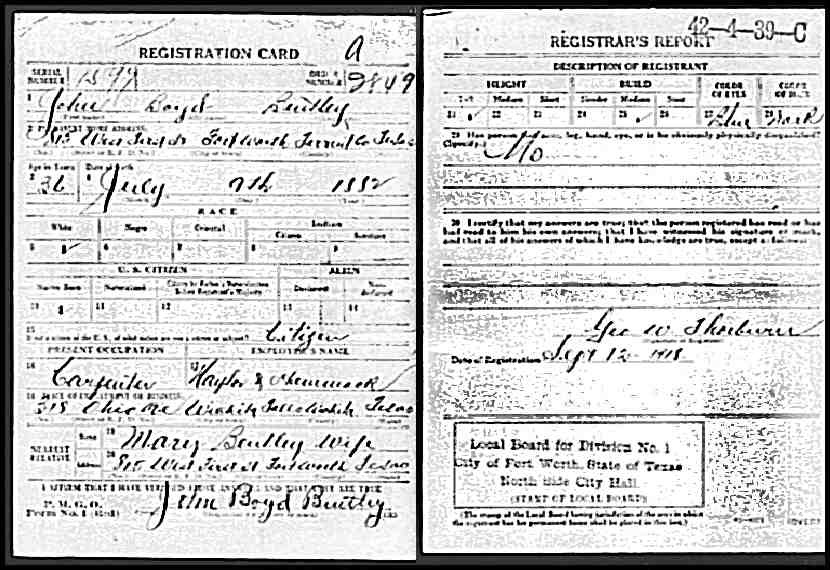 REGISTRATION CARD A
SERIAL NUMBER ORDER NUMBER 2849
1 John Boyd Bentley
2 PERMANENT HOME ADDRESS:
815 West First St Fort Worth Tarrant Co Texas
Age in Years Date of Birth
36 July 7th 1882
RACE
White Negro Oriental Indian
Citizen
5 6 7 8 9
U. S. CITIZEN ALIEN
Native Born Naturalized Citizen by Father's Naturalization Before Registrant's Majority Declarant Non-declarant
10 11 12 13 14
15 If not a citizen of the U. S., of what nation are you a citizen or subject? Citizen
PRESENT OCCUPATION EMPLOYER'S NAME
16 Carpenter 17
18 PLACE OF EMPLOYMENT OR BUSINESS:
Texas
NEAREST RELATIVE Name 19 Mary Bentley wife
Address 20 815 West First St Fort Worth Texas
I AFFIRM THAT I HAVE VERIFIED ABOVE ANSWERS AND THAT THEY ARE TRUE
P. M. G. O.
Form No. 1 (Red) John Boyd Bentley
42-4-39-C
REGISTRAR'S REPORT
DESCRIPTION OF REGISTRANT
HEIGHT BUILD COLOR OF EYES COLOR OF HAIR
Tall Medium Short Slender Medium Stout
21 22 23 24 25 26 27 Blue 28 Dark
29 Has person lost arm, leg, hand, eye, or is he obviously physically disqualified?
(Specify.) No
30 I certify that my answers are true; that the person registered has read or has
had read to him his own answers; that I have witnessed his signature or mark,
and that all of his answers of which I have knowledge are true, except as follows:
Geo W.
Date of Registration Sept 12 1918
Local Board for Division No. 1
City of Fort Worth, State of Texas
North Side City Hall
(STAMP OF LOCAL BOARD)
(The stamp of the Local Board having jurisdiction of the area in which
the registrant has his permanent home shall be placed in this box.)